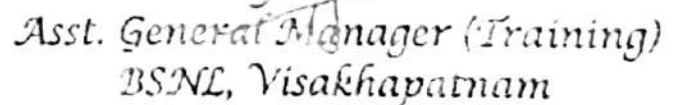 Asst. General Manager (Training)
BSNL, Visakhapatnam